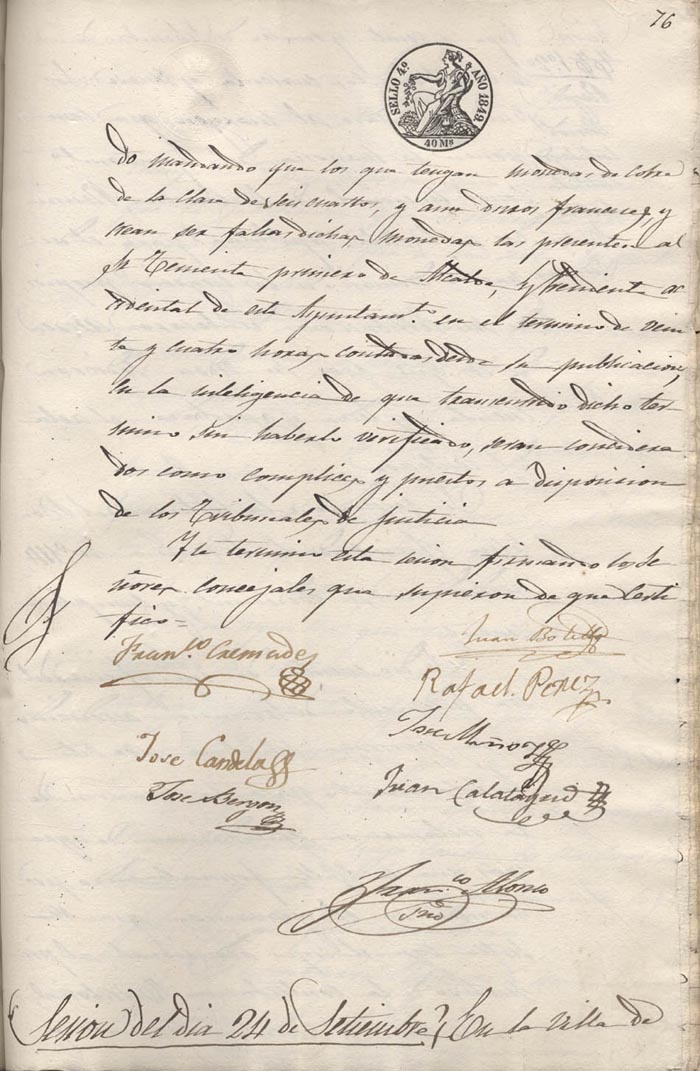 76
SELLO 4º AÑO 1849.
40 Ms
do mandando que los que tengan monedas de cobre
de la clase de seis cuartos, y aun dozos franceses, y
crean ser falsas dichas monedas las presenten al
Sr Teniente primero de Alcalde, y Presidente ac
cidental de este Ayuntamto en el termino de vein
te y cuatro horas contadas desde su publicacion,
en la inteligencia de que transcurrido dicho ter
mino sin haberlo verificado, seran considera
dos como complices y puestos a disposicion
de los Tribunales de justicia
Y se termino esta sesion firmando los Se
ñores concejales que supieron de que certi
fico =
Franco Cremades
Juan Botella
Rafael Perez
Jose Muñoz
Jose Candela
Juan Calatayud
Jose Bergon
Franco Alonso
Srio
Sesion del dia 24 de Setiembre, En la villa de